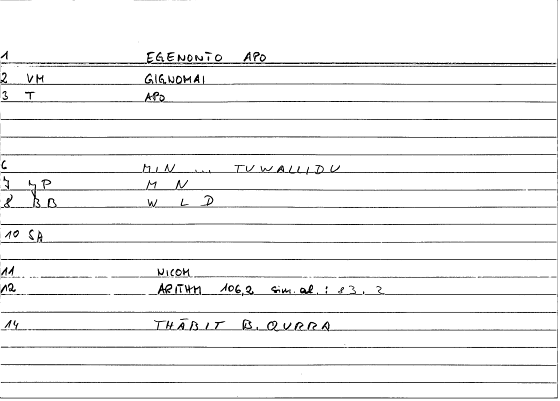 1 EGENONTO APO
2 VM GIGNOMAI
3 T APO
6 MIN ... TUWALLIDU
7 YP M N
8 BB W L D
10 SA
11 NICOM
12 ARITHM 106,2 sim. al.: 83. 2
14 THĀBIT B. QURRA